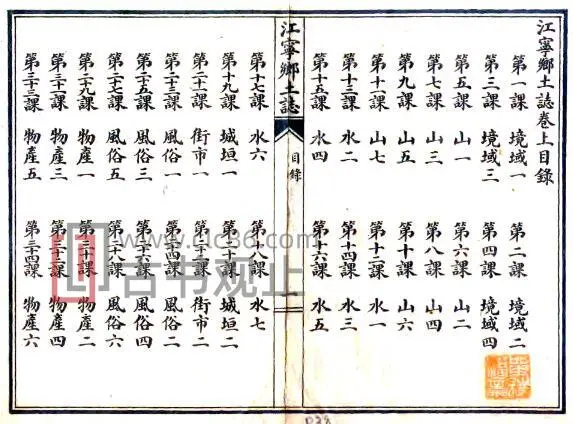 江寧鄉土誌卷上目錄
第一課 境域一 第二課 境域二
第三課 境域三 第四課 境域四
第五課 山一 第六課 山二
第七課 山三 第八課 山四
第九課 山五 第十課 山六
第十一課 山七 第十二課 水一
第十三課 水二 第十四課 水三
第十五課 水四 第十六課 水五
江寧鄉土誌 目錄 一
第十七課 水六 第十八課 水七
第十九課 城垣一 第二十課 城垣二
第二十一課 街市一 第二十二課 街市二
第二十三課 風俗一 第二十四課 風俗二
第二十五課 風俗三 第二十六課 風俗四
第二十七課 風俗五 第二十八課 風俗六
第二十九課 物產一 第三十課 物產二
第三十一課 物產三 第三十二課 物產四
第三十三課 物產五 第三十四課 物產六
古书观止